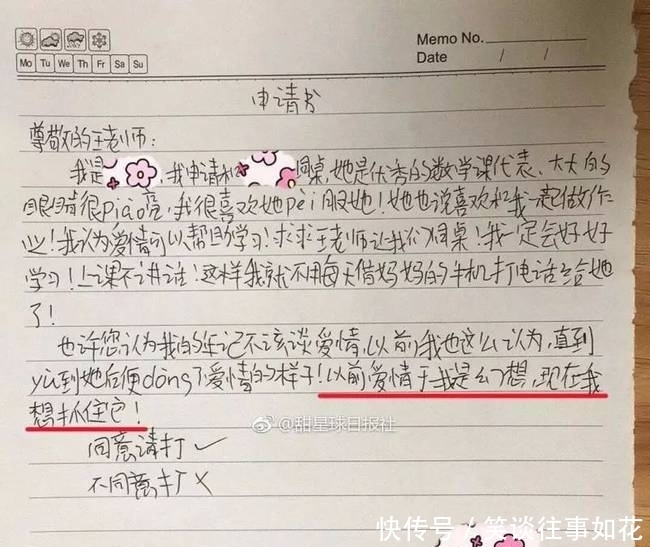 Memo No.
Mo Tu We Th Fr Sa Su
Date / /
申请书
尊敬的王老师：
我是，我申请和同桌，她是优秀的数学课代表、大大的
眼睛很piào亮，我很喜欢她pèi服她！她也说喜欢和我一起做作
业！我认为爱情可以帮助学习！求求王老师让我们同桌！我一定会好好
学习！上课不讲话！这样我就不用每天借妈妈的手机打电话给她
了！
也许您认为我的年记不该谈爱情，以前我也这么认为，直到
yù到她后便dǒng了爱情的样子！以前爱情于我是幻想，现在我
想抓住它！
同意请打✓
不同意打×
@甜星球日报社
快传号/笑谈往事如花